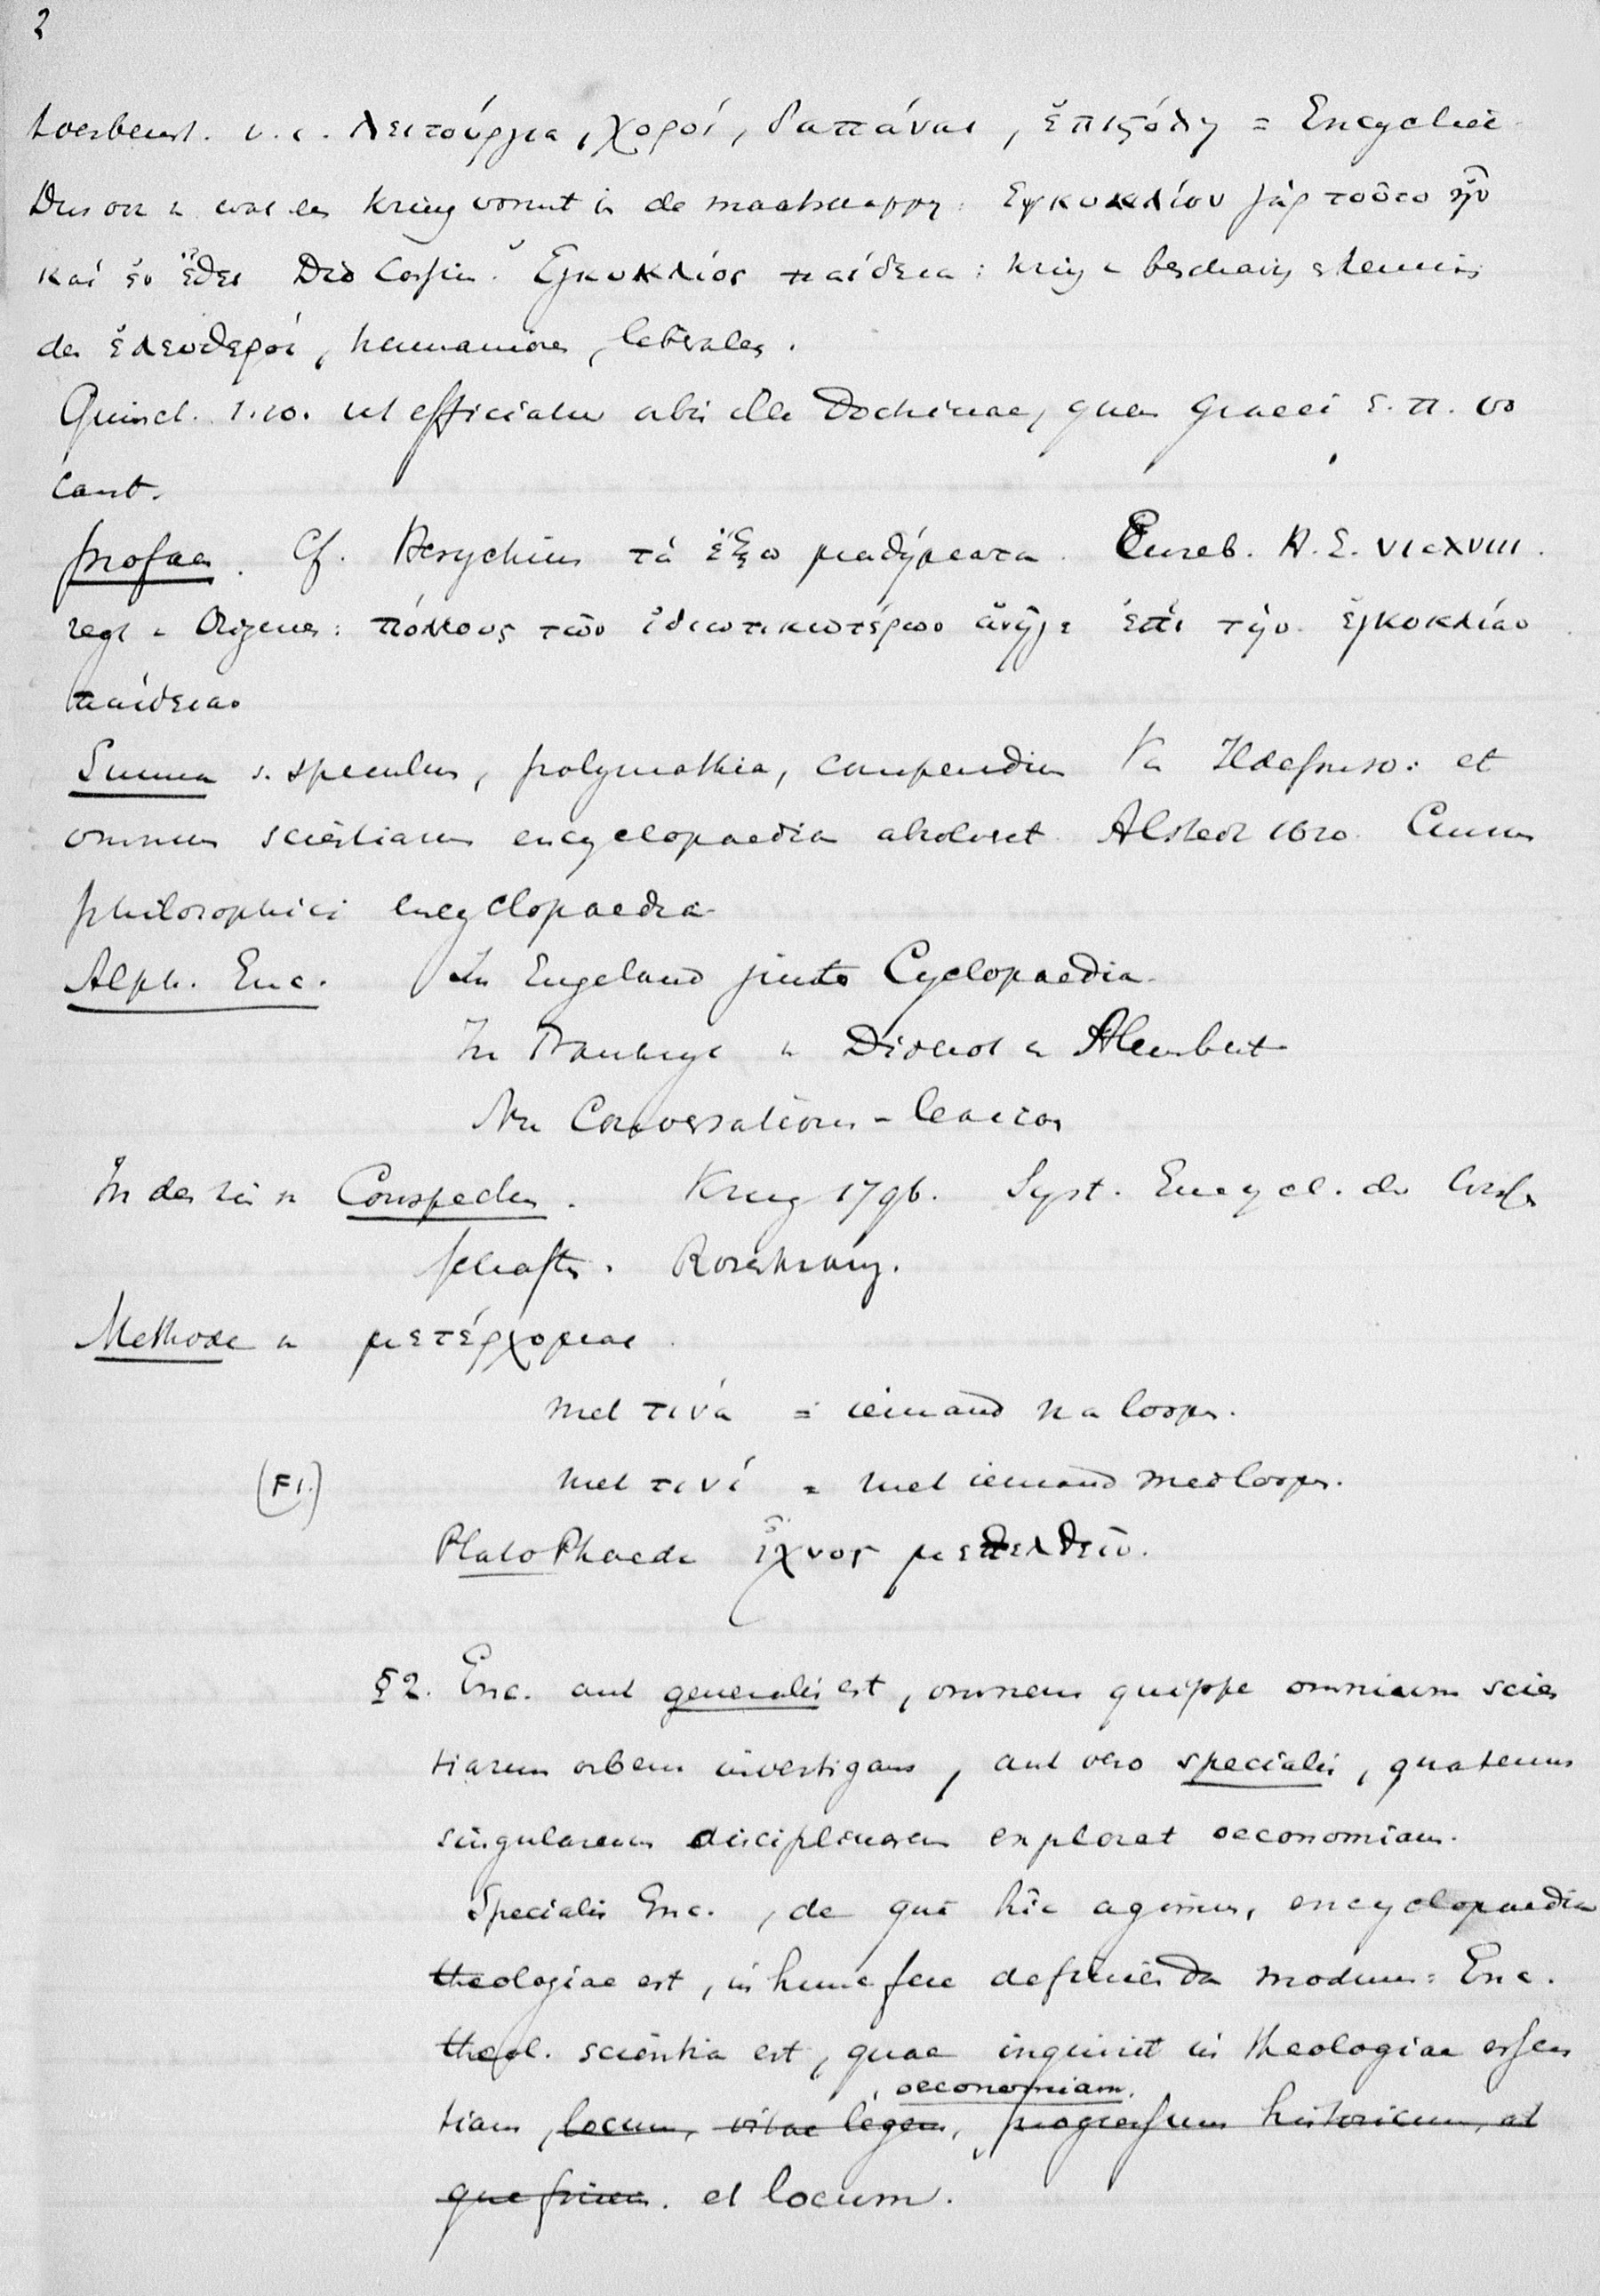 2
v. c. λειτούργια, χοροί, δαπάναι, ἐπιςόλη = Encyclie
Dus ook wat een kring vormt in de maatschappy: Εγκυκλίου γάρ τοῦτο ἦν
καί ἐν ἔθει Dio Cassius. Εγκυκλίος παίδεια: kring beschaving
der ἐλευθεροί, humaniora, liberales.
Quinct. 1.10. ut efficiatur orbis ille Doctrinae, quem Graeci ε. π. vo
cant.
profaen. Cf. Hesychius τά ἔξω μαθήματα. Euseb. H. E. VI c XVIII.
zegt Origenes: πόλλους τῶν ἰδιωτικωτέρων ἀνῆγε ἐπί τήν ἐγκυκλίαν
παίδειαν
Summa s. speculum, polymathia, compendium Ildefonso: et
omnium scientiarum encyclopaedia absolvet Alsted 1620. Cursus
philosophici encyclopaedia
Alph. Enc. In Engeland Cyclopaedia
In Frankryk Diderot Alembert
Nu Conversations-lexicon
In den zin Conspectus. Krug 1796. Syst. Encycl. der Wissen
schaften. Rosenkranz.
Methode μετέρχομαι
met τινά = iemand na loopen.
(F1.) met τινί = met iemand medloopen.
Plato Phaedr ἴχνος μετελθεῖν.
§2. Enc. aut generalis est, omnem quippe omnium scien
tiarum orbem investigans, aut vero specialis, quatenus
singularem disciplinarum explorat oeconomiam.
Specialis Enc., de quâ hîc agimus, encyclopaedia
theologiae est, in hunc fere definienda modum: Enc.
theol. scientia est, quae inquirit in theologiae essen
tiam, locum, vitae legem, oeconomiam, progressum historicum, at
que finem. et locum.